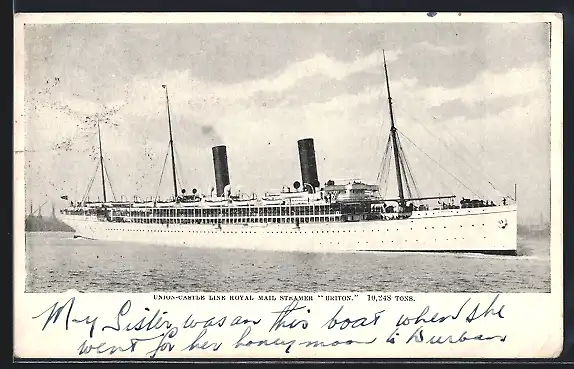 UNION-CASTLE LINE ROYAL MAIL STEAMER "BRITON." 10,248 TONS.
My Sister was on this boat when She
went for her honeymoon to Durban